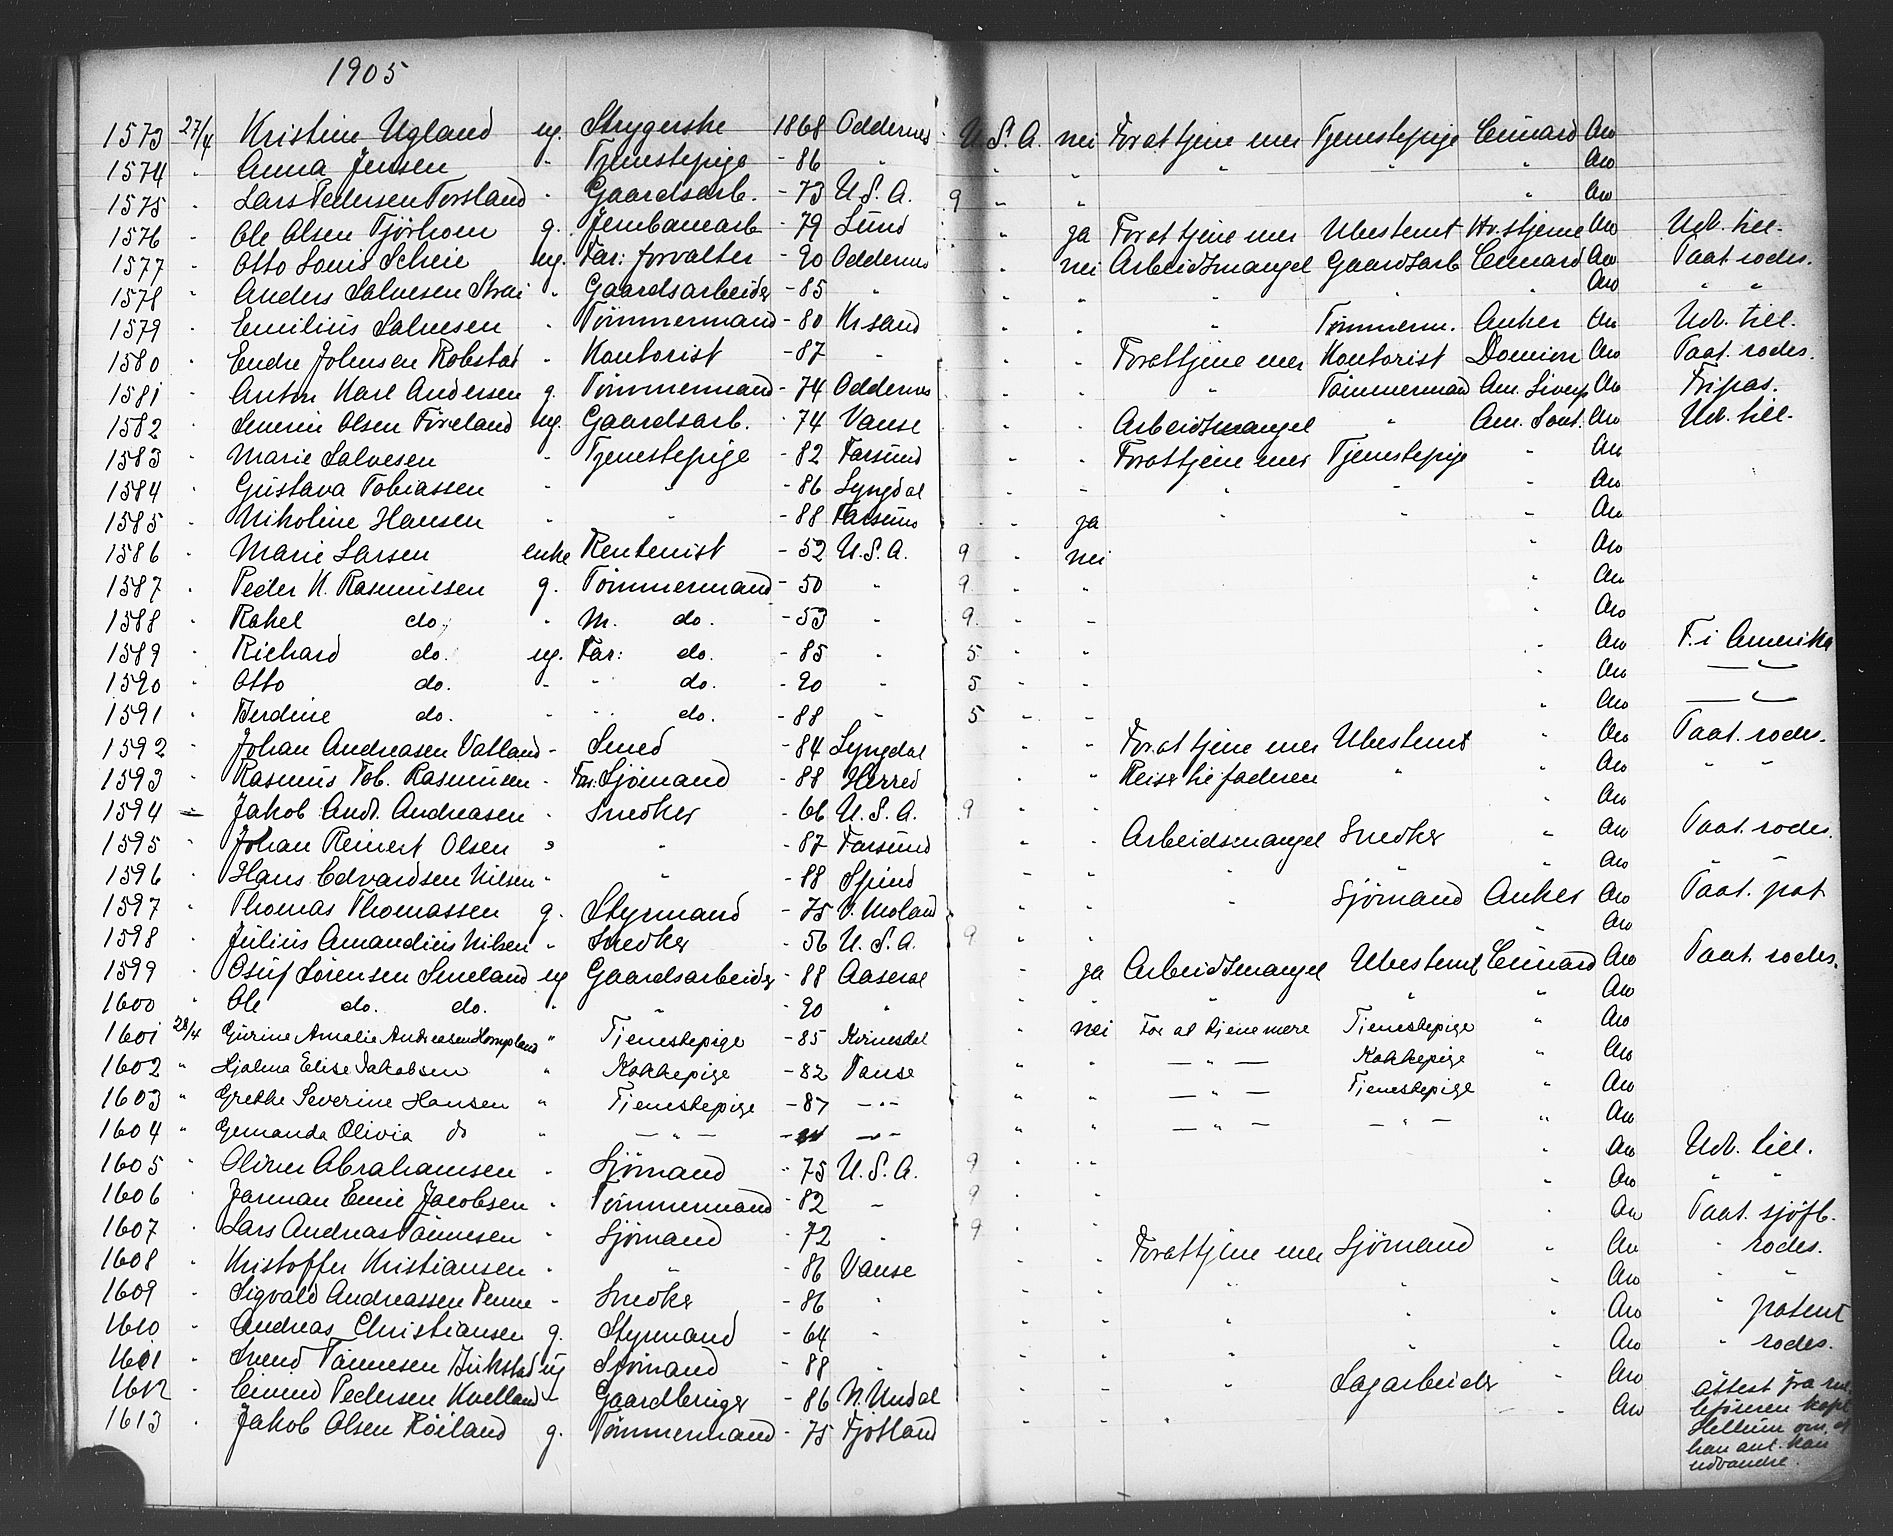 1905
1573 27/4 Kristine Ugland ug. Strygerske 1868 Oddernes U.S.A. nei For at tjene mer Tjenestepige Cunard Aro
1574 " Anna Jensen " Tjenestepige - 86 " " " " " " Aro
1575 " Lars Pedersen Torsland " Gaardsarb. - 73 U.S.A. 9 " " " Aro
1576 " Ole Olsen Tjørhom g. Jernbanearb - 79 Lund " ja For at tjene mer Ubestemt Hv. stjerne Aro Udv. till.
1577 " Otto Louis Scheie ug. Far: forvalter - 90 Oddernes " nei Arbeidsmangel Gaardsarb Cunard Aro Taat. rodes.
1578 " Anders Salvesen Strai " Gaardsarbeider - 85 " " " " " " Aro " "
1579 " Emilius Salvesen " Tømmermand - 80 Krsand " " " Tømmerm. Anker Aro Udv. till.
1580 " Endre Johnsen Robstad " Kontorist - 87 " " " For at tjene mer Kontorist Domion Aro Taat. rodes.
1581 " Anton Karl Andersen g. Tømmermand - 74 Oddernes " " " Tømmermand Am. Liverp Aro Fripas.
1582 " Severin Olsen Føreland ug. Gaardsarb. - 74 Vanse " " Arbeidsmangel " Am. Sout. Aro Udv. till.
1583 " Marie Salvesen " Tjenestepige - 82 Farsund " " For at tjene mer Tjenestepige " Aro
1584 " Gustava Tobiassen " " - 86 Lyngdal " " " " " Aro
1585 " Nikoline Hansen " " - 88 Farsund " ja " " " Aro
1586 " Marie Larsen enke Rentenist - 52 U.S.A. 9 " nei " Aro
1587 " Peder N. Rasmussen g. Tømmermand - 50 " 9 " " " Aro
1588 " Rakel do. " M. do. - 53 " 9 " " " Aro
1589 " Richard do. ug. Far: do. - 85 " 5 " " " Aro F. i Amerika
1590 " Otto do. " " do. - 90 " 5 " " Aro — " —
1591 " Berdine do. " " do. - 88 " 5 " " " Aro — " —
1592 " Johan Andreasen Vatland " Smed - 84 Lyngdal " " For at tjene mer Ubestemt " Aro Taat. rodes.
1593 " Rasmus Tob. Rasmusen " Far. Sjømand - 88 Herred " " Reiser til faderen " " Aro " "
1594 " Jakob Andr. Andreasen " Snedker - 66 U.S.A. 9 " " " Aro
1595 " Johan Reinert Olsen " " - 87 Farsund " " Arbeidsmangel Snedker " Aro Taat. rodes.
1596 " Hans Edvardsen Nilsen " " - 88 Spind " " " " " Aro " "
1597 " Thomas Thomassen g. Styrmand - 75 V. Moland " " " Sjømand Anker Aro Taat. pat
1598 " Julius Amandius Nilsen " Snedker - 56 U.S.A. 9 " " " Aro
1599 " Osuf Sørensen Smeland ug Gaardsarbeider - 88 Aaseral " ja Arbeidsmangel Ubestemt Cunard Aro Taat. rodes.
1600 " Ole do. do. " " - 90 " " nei " " " Aro
1601 28/4 Gurine Amalie Andreasen ug " Tjenestepige - 85 Kvinesdal " nei For at tjene mere Tjenestepige " Aro
1602 " Hjalma Elise Jakobsen " Kokkepige - 82 Vanse " " — " — Kokkepige " Aro
1603 " Grethe Severine Hansen " Tjenestepige - 87 — " — " " — " — Tjenestepige " Aro
1604 " Gemanda Olivia do " — " — — " — " " — " — — " — " Aro
1605 " Oliver Abrahamsen " Sjømand - 75 U.S.A. 9 " " " Aro Udv. till.
1606 " Jarman Emil Jacobsen " Tømmermand - 82 " 9 " " " Aro " "
1607 " Lars Andreas Tønnesen " Sjømand - 72 " 9 " " " Aro Taat. sjøfb.
1608 " Kristoffer Kristiansen " " - 86 Vanse " " For at tjene mer Sjømand " Aro " rodes.
1609 " Sigvald Andreassen Penne " Snedker - 86 " " " " " " Aro " "
1610 " Andreas Christiansen g. Styrmand - 64 " " " " " " Aro " patent
1611 " Svend Tønnesen Birkeland ug Sjømand - 88 " " " " " " Aro " rodes.
1612 " Eivind Pedersen Kvelland " Gaardbruger - 86 N. Undal " " " Sagarbeider " Aro
1613 " Jakob Olsen Røiland g. Tømmermand - 75 Fjotland " " " " " Aro Attest fra
kapt.
Hellum om, at
han ant. kan
udvandre.